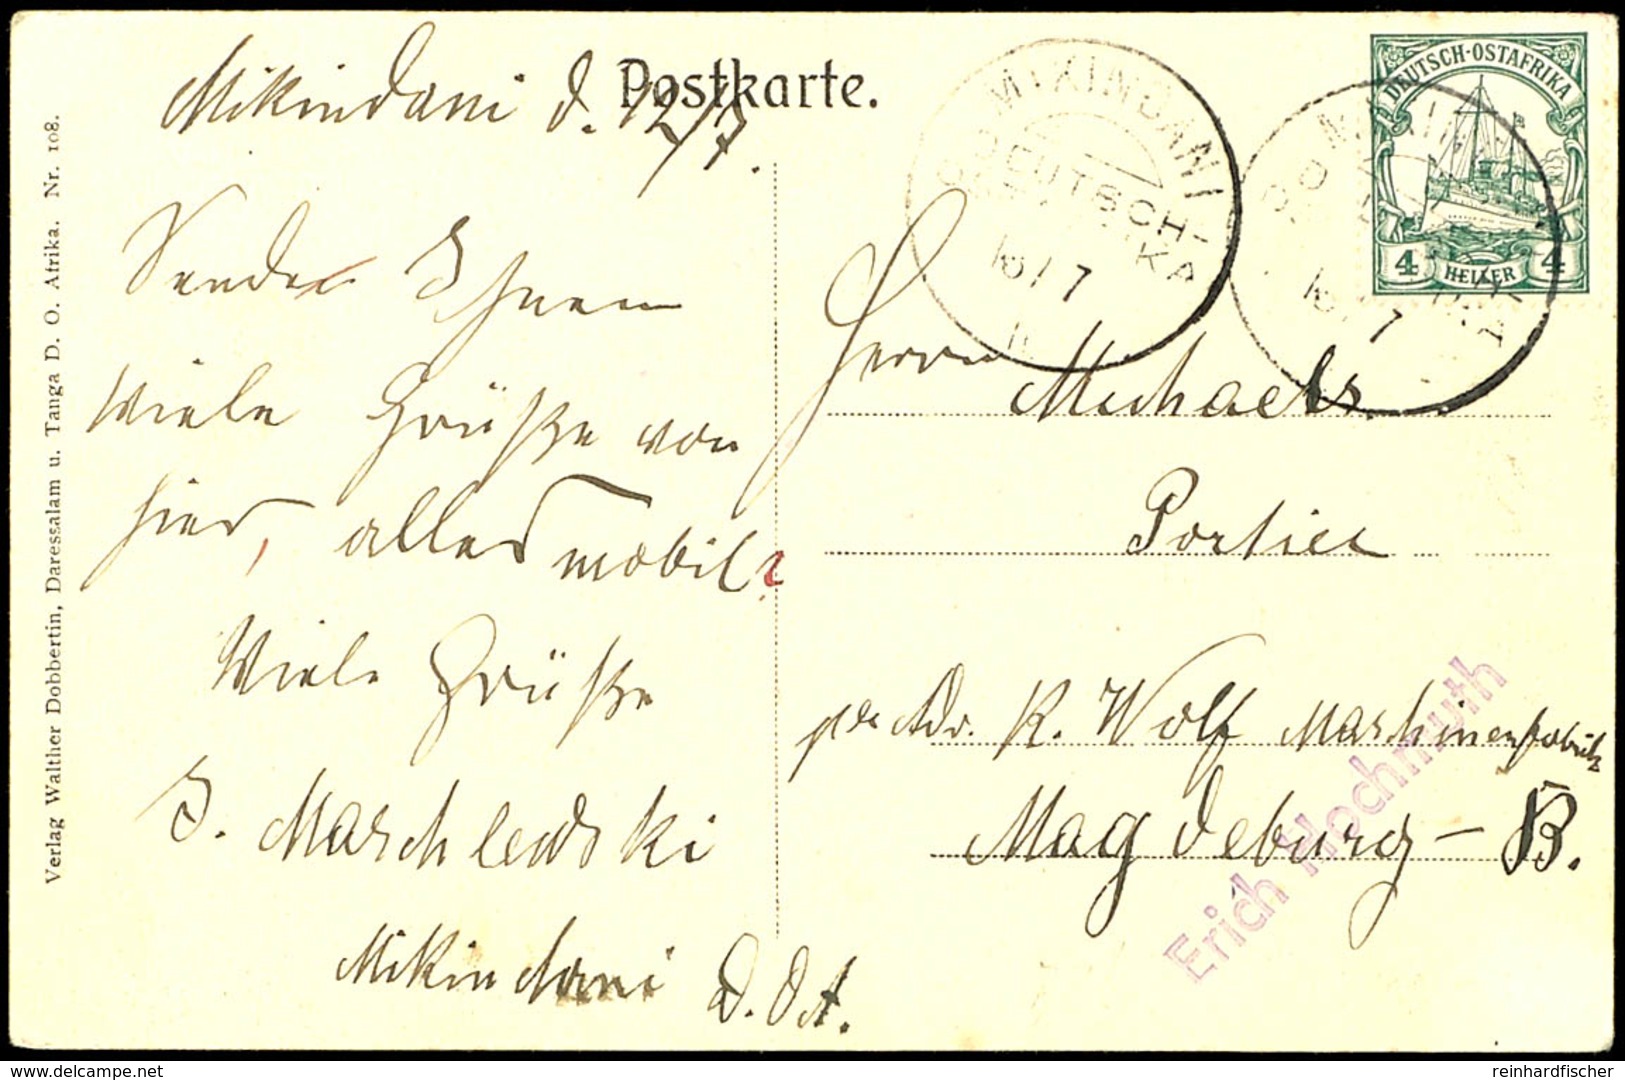 Postkarte.
Mikindani d. 12/7.
Sende Ihnen
Viele Grüße von
hier, alles mobil?
Viele Grüße
J. Marschlewski
Mikindani D.O.A.
Verlag Walther Dobbertin, Daressalam u. Tanga D. O. Afrika. Nr. 108.
MIKINDANI
DEUTSCH-
16/7
DEUTSCH-OSTAFRIKA
4 HELLER 4
16/7
Herrn
Michaels
Portier
per Adr. R. Wolf Maschinenfabrik
Magdeburg - B.
Erich Hochmuth
delcampe.net
reinhardfischer